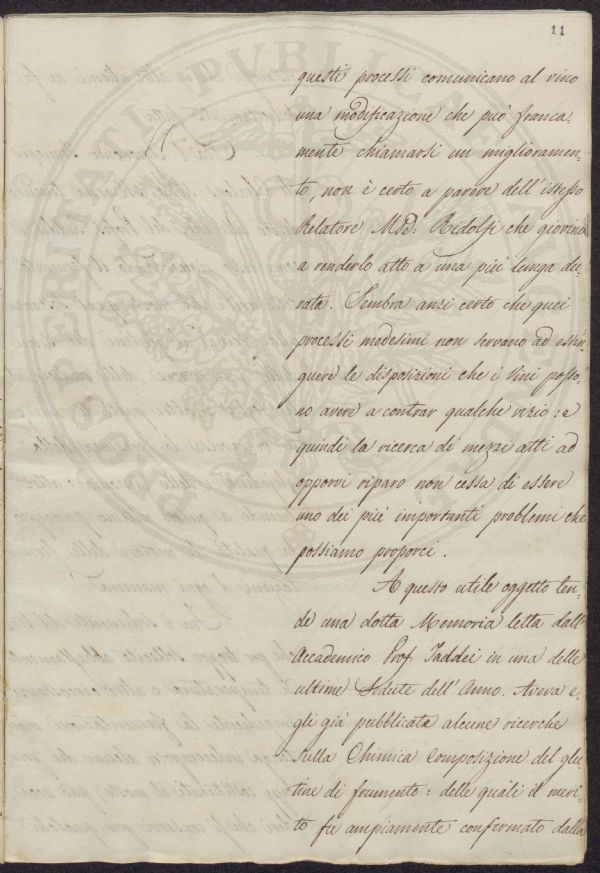 11
questi processi comunicano al vino
una modificazione che può franca-
mente chiamarsi un miglioramen-
to, non è certo a parere dell'istesso
Relatore M.se: Ridolfi che giovino
a renderlo atto a una più lunga du-
rata. Sembra anzi certo che quei
processi medesimi non servano ad estin-
guere le disposizioni che i Vini posso-
no avere a contrar qualche vizio: e
quindi la ricerca di mezzi atti ad
opporvi riparo non cessa di essere
uno dei più importanti problemi che
possiamo proporci.
A questo utile oggetto ten-
de una dotta Memoria letta dall'
Accademico Prof. Taddei in una delle
ultime Sedute dell'Anno. Aveva e-
gli già pubblicate alcune ricerche
sulla Chimica Composizione del glu-
tine di frumento: delle quali il meri-
to fu ampiamente confermato dalla